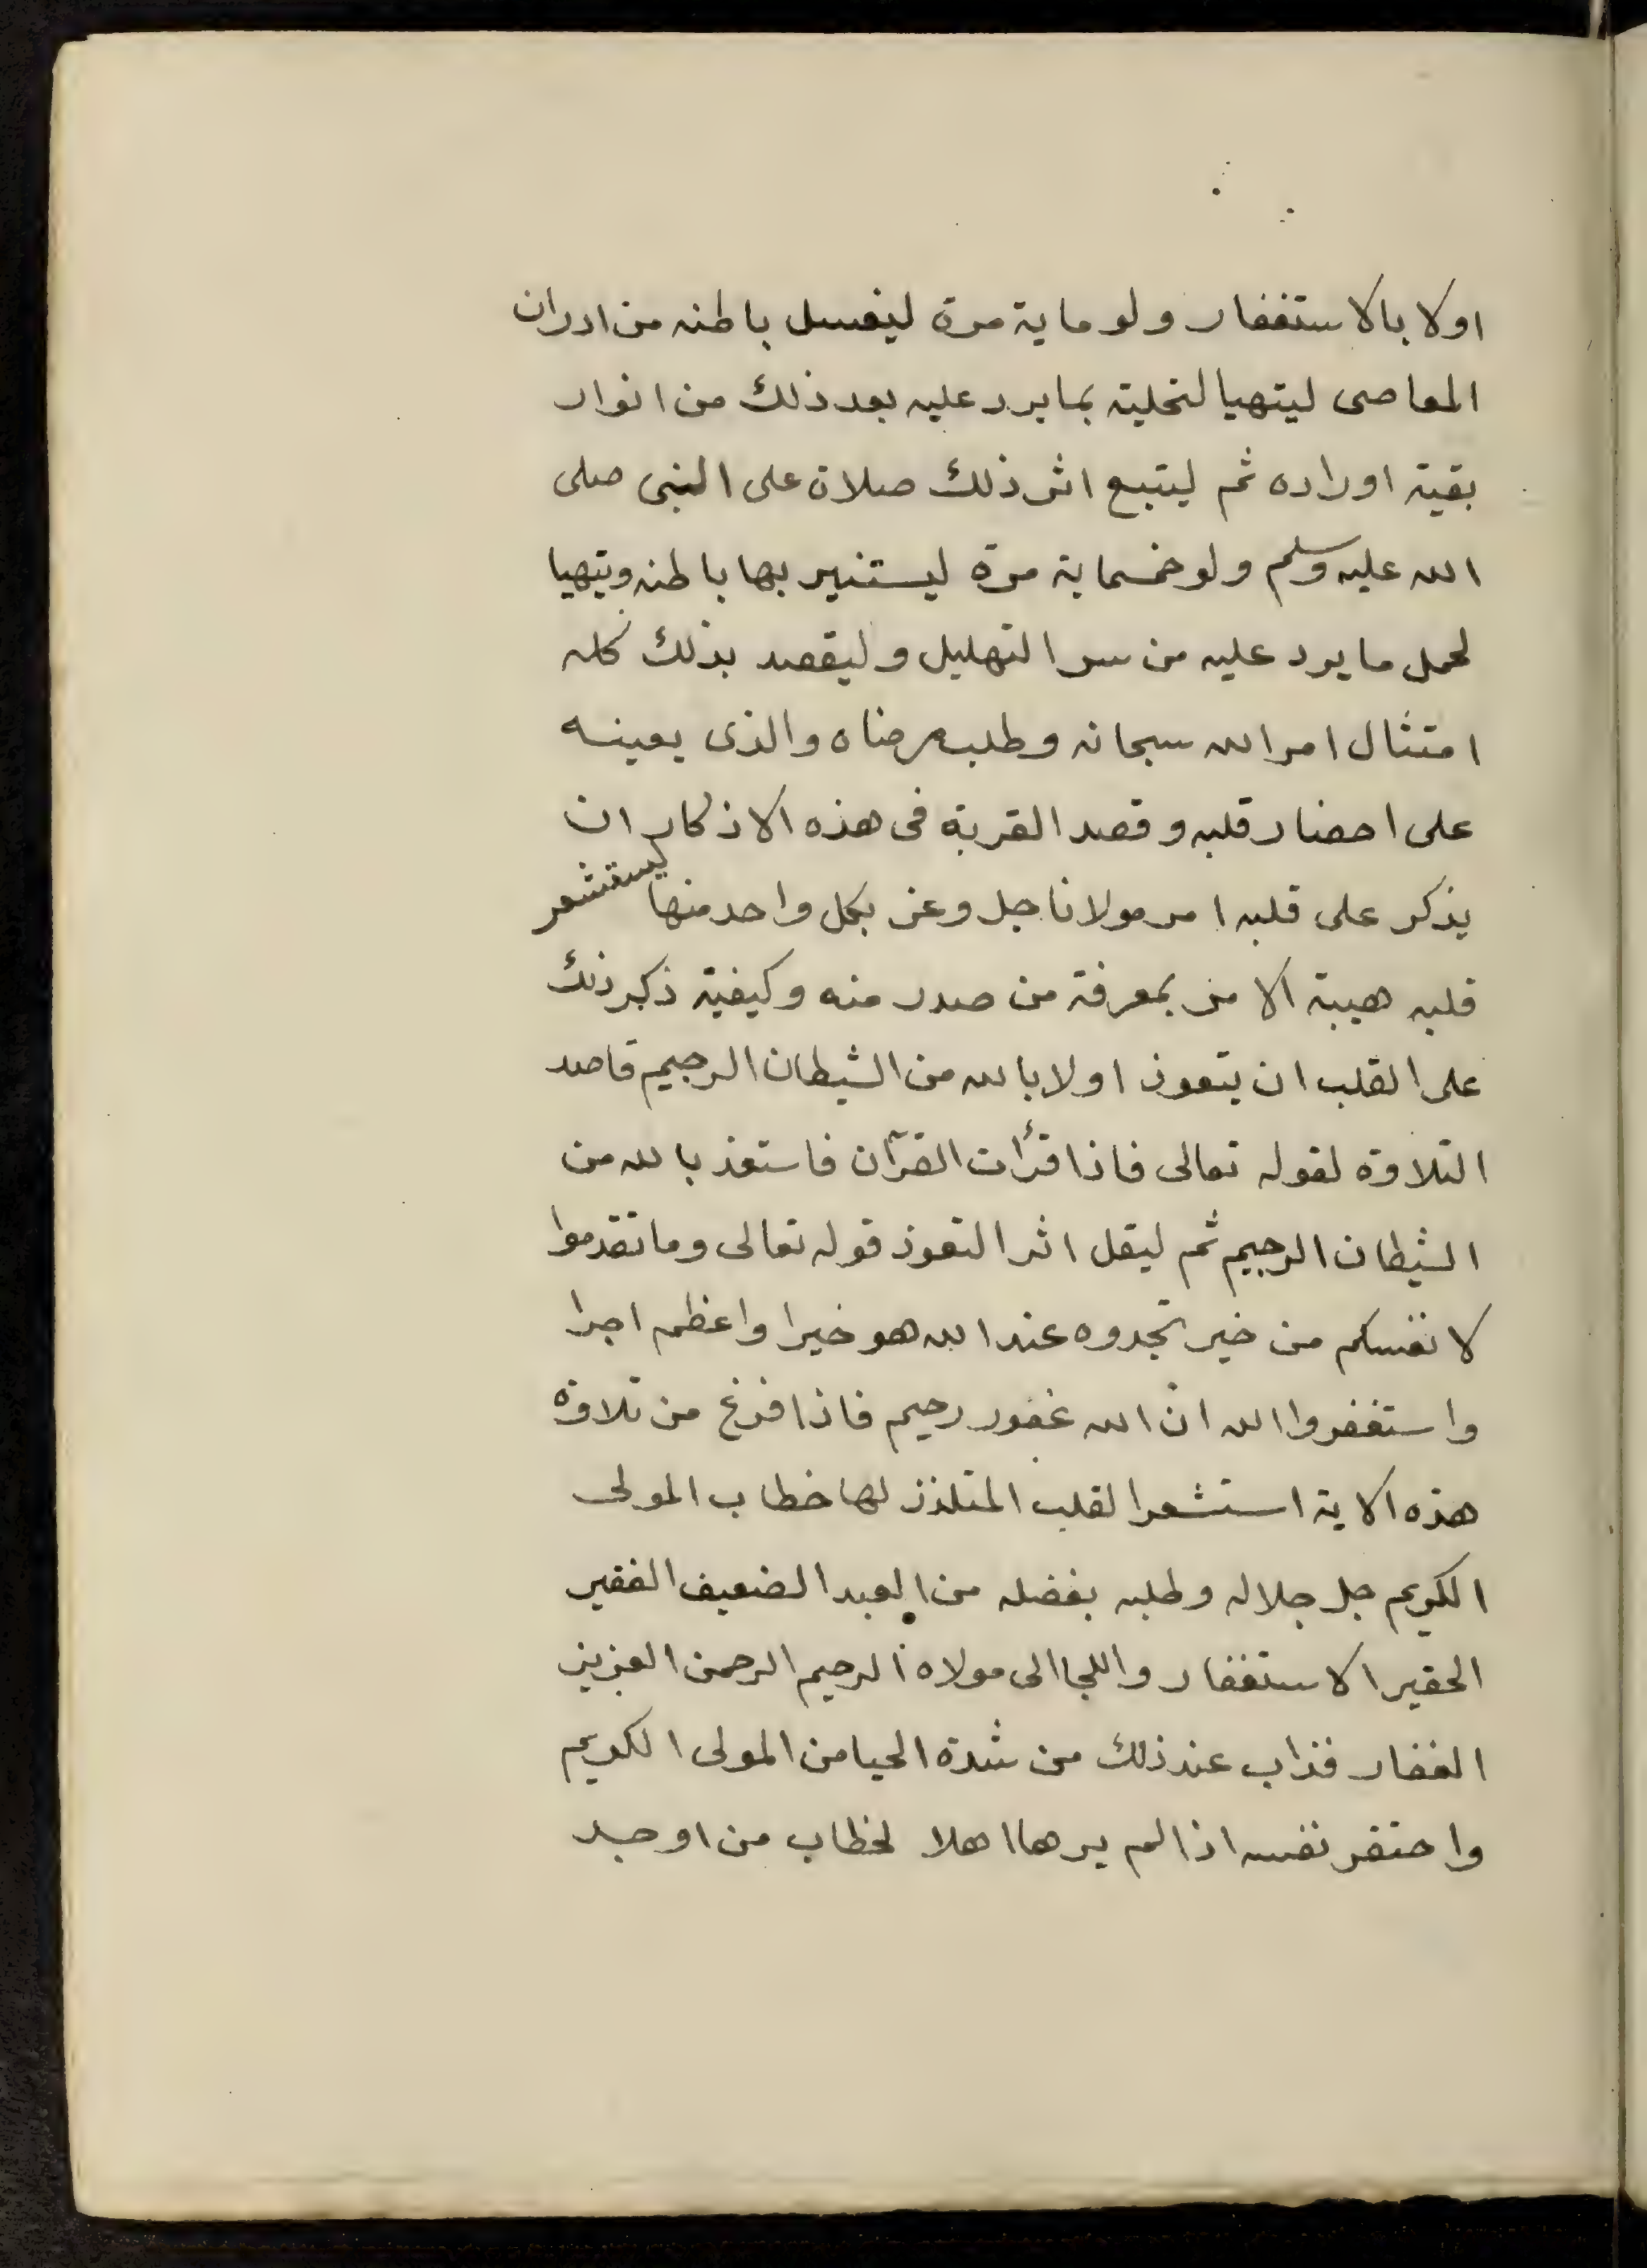 اولا بالاستغفار ولو ماية مرة ليغسل باطنه من ادران
المعاصى ليتهيا لتحليته بما يرد عليه بعد ذلك من انوار
بقية اوراده ثم ليتبع اثر ذلك صلاة على النبى صلى
الله عليه وسلم ولو خمسماية مرة ليستنير بها باطنه ويتهيا
لحمل ما يرد عليه من سر التهليل وليقصد بذلك كله
امتثال امر الله سبحانه وطلب رضاه والذى يعينه
على احضار قلبه وقصد القربة فى هذه الاذكار ان
يذكر على قلبه امر مولانا جل وعز بكل واحد منها ليستشعر
قلبه هيبة الامر بمعرفة من صدر منه وكيفية ذكر ذلك
على القلب ان يتعوذ اولا بالله من الشيطان الرجيم قاصد
التلاوة لقوله تعالى فاذا قرأت القرآن فاستعذ بالله من
الشيطان الرجيم ثم ليقل اثر التعوذ قوله تعالى وما تقدموا
لانفسكم من خير تجدوه عند الله هو خيرا واعظم اجرا
واستغفروا الله ان الله غفور رحيم فاذا فرغ من تلاوة
هذه الاية استشعر القلب المتلذذ لها خطاب المولى
الكريم جل جلاله وطلبه بفضله من العبد الضعيف الفقير
الحقير الاستغفار واللجا الى مولاه الرحيم الرحمن العزيز
الغفار فذاب عند ذلك من شدة الحيا من المولى الكريم
واحتقر نفسه اذا لم يرها اهلا لخطاب من اوجد